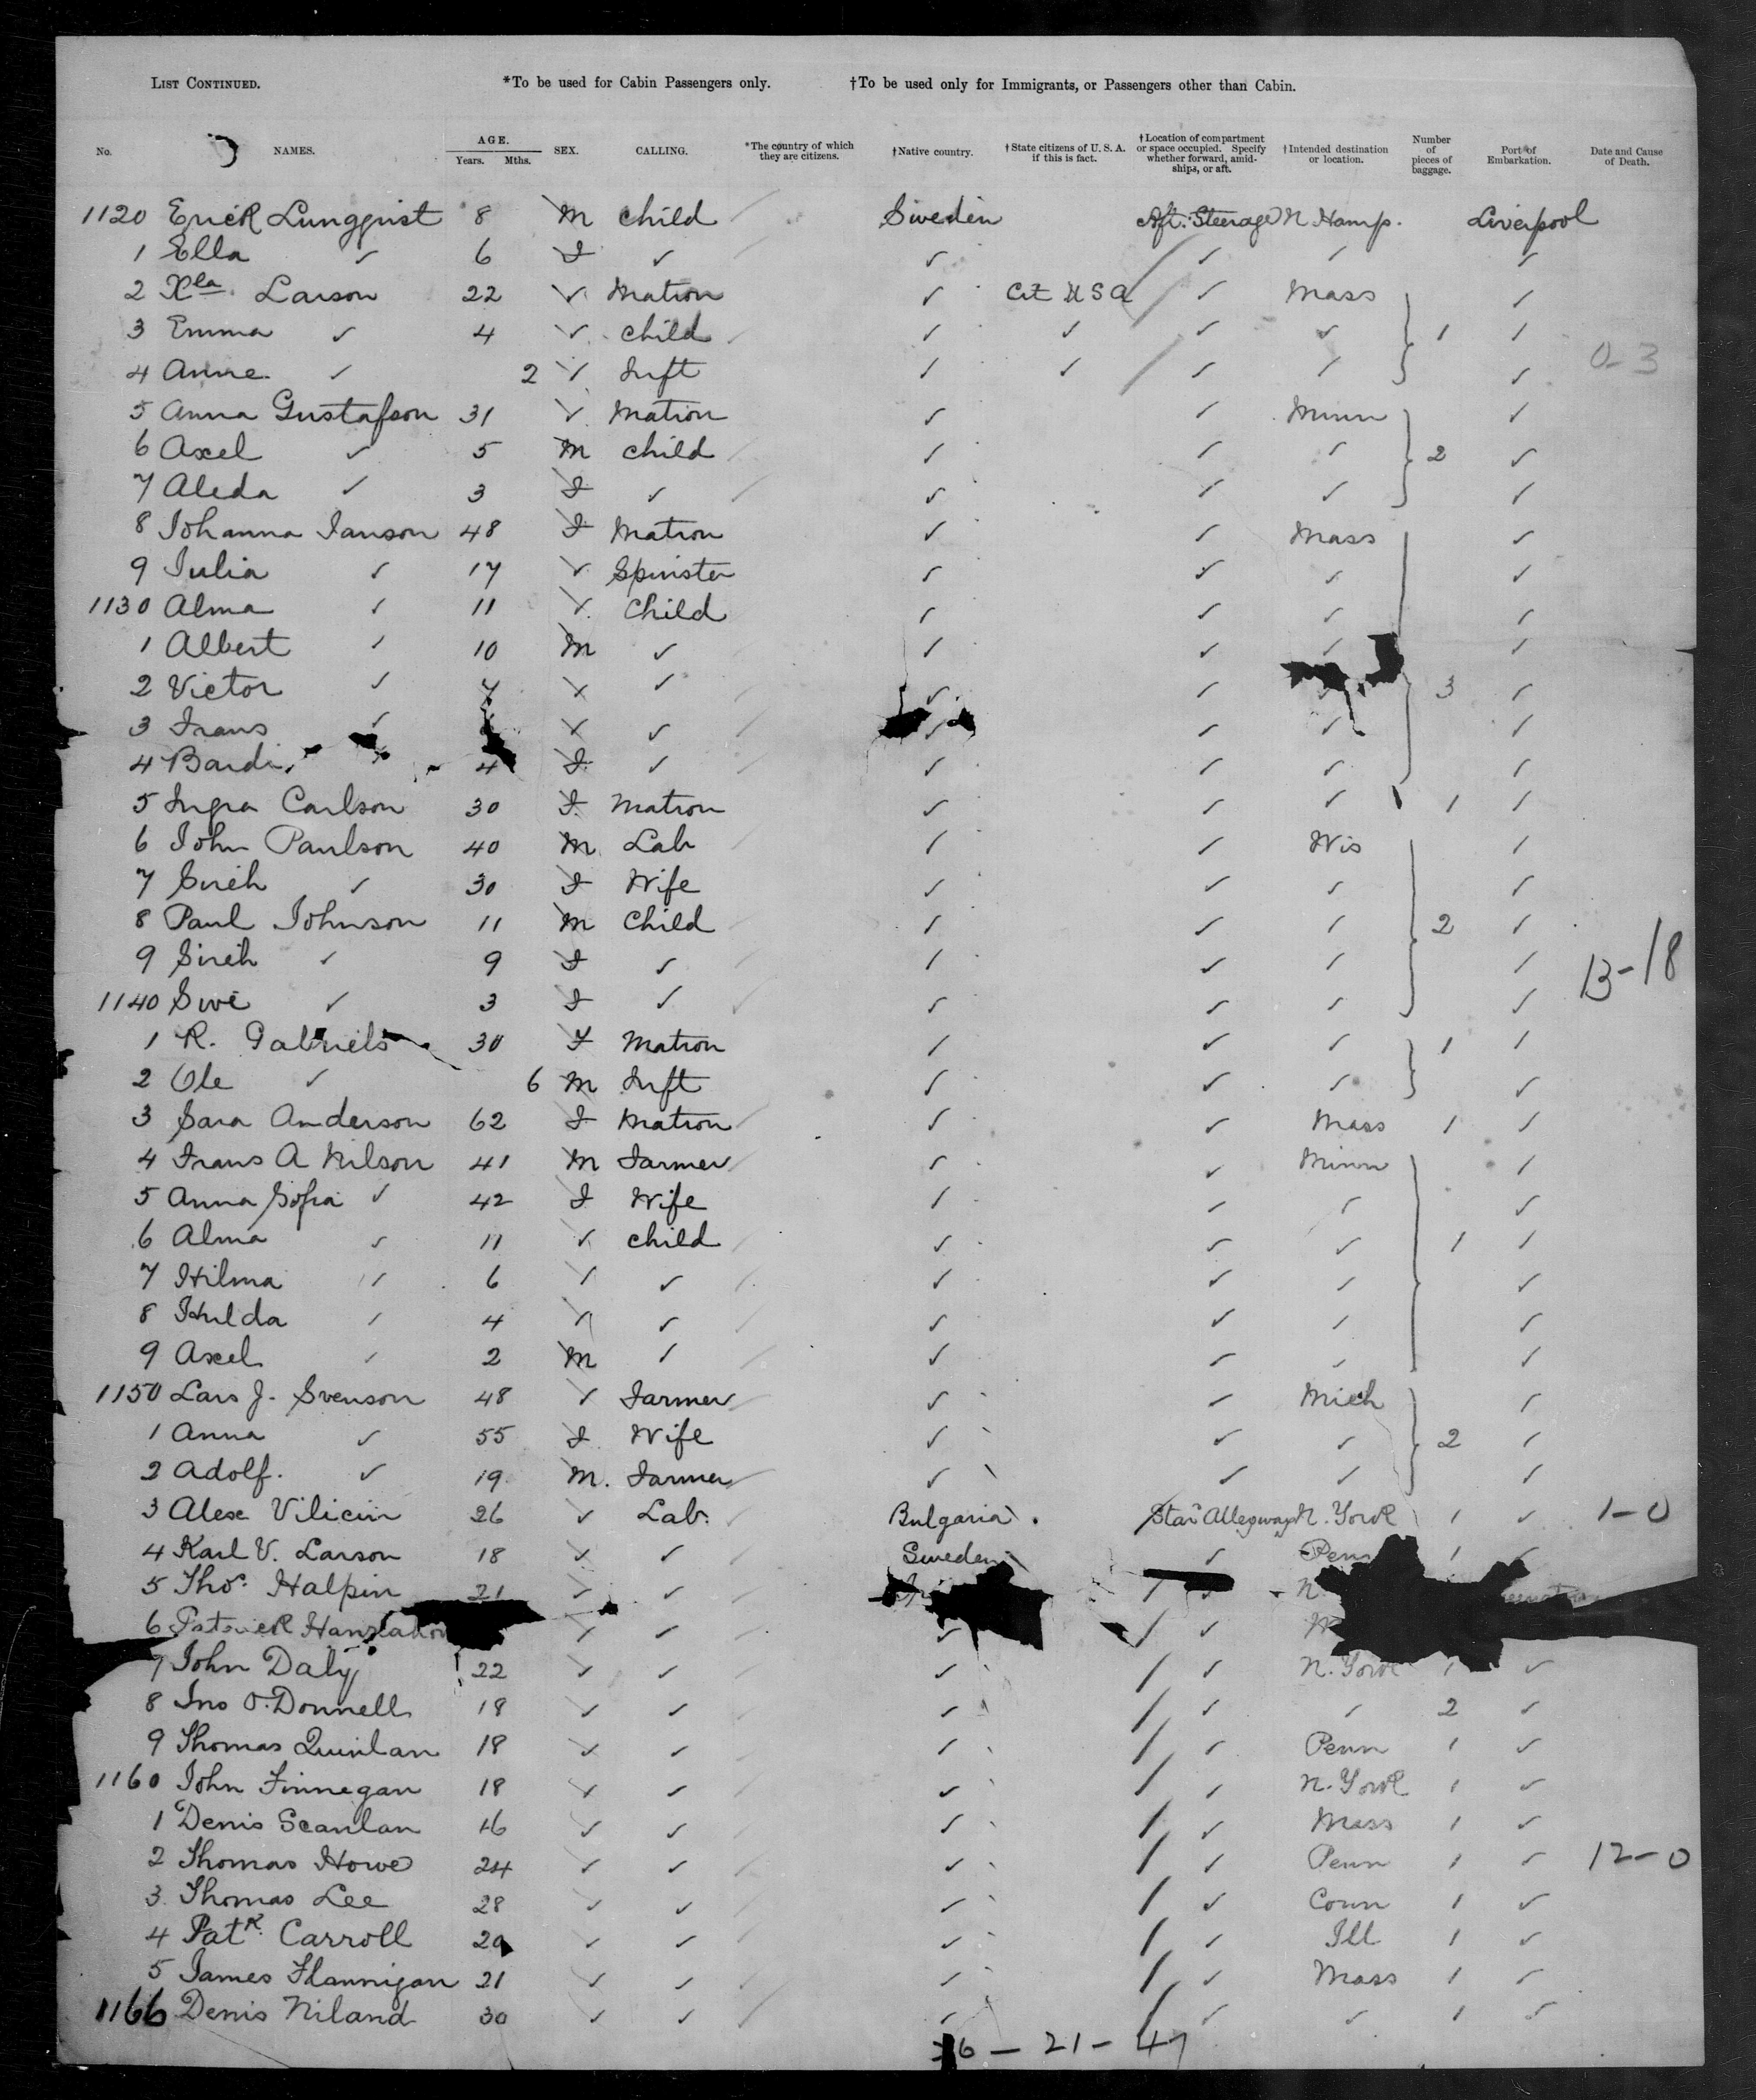 LIST CONTINUED. *To be used for Cabin Passengers only. †To be used only for Immigrants, or Passengers other than Cabin.
No. NAMES. AGE. Years. Mths. SEX. CALLING. *The country of which they are citizens. †Native country. †State citizens of U. S. A. if this is fact. †Location of compartment or space occupied. Specify whether forward, amid-ships, or aft. †Intended destination or location. Number of pieces of baggage. Port of Embarkation. Date and Cause of Death.
1120 Erick Lungquist 8 M Child Sweden Aft. Steerage N Hamp. Liverpool
1 Ella ✓ 6 F ✓ ✓ ✓ ✓ ✓
2 Larson 22 ✓ Matron ✓ Cit USA ✓ Mass ✓
3 Emma ✓ 4 ✓ Child ✓ ✓ ✓ ✓ 1 ✓
4 Anne ✓ 2 ✓ Inft ✓ ✓ ✓ ✓ ✓ 0-3
5 Anna Gustafson 31 ✓ Matron ✓ ✓ Minn ✓
6 Axel ✓ 5 M Child ✓ ✓ ✓ 2 ✓
7 Aleda ✓ 3 F ✓ ✓ ✓ ✓ ✓
8 Johanna Janson 48 F Matron ✓ ✓ Mass ✓
9 Julia ✓ 17 ✓ Spinster ✓ ✓ ✓ ✓
1130 Alma ✓ 11 ✓ Child ✓ ✓ ✓ ✓
1 Albert ✓ 10 M ✓ ✓ ✓ ✓ ✓
2 Victor ✓ 7 ✓ ✓ ✓ ✓ ✓ 3 ✓
3 Frans ✓ ✓ ✓ ✓ ✓ ✓ ✓
4 4 F ✓ ✓ ✓ ✓ ✓
5 Ingra Carlson 30 F Matron ✓ ✓ ✓ 1 ✓
6 John Paulson 40 M Lab ✓ ✓ Wis ✓
7 Sireh ✓ 30 F Wife ✓ ✓ ✓ ✓
8 Paul Johnson 11 M Child ✓ ✓ ✓ 2 ✓
9 Sireh ✓ 9 F ✓ ✓ ✓ ✓ ✓ 13-18
1140 Swe ✓ 3 F ✓ ✓ ✓ ✓ ✓
1 R. Gabriels 30 F Matron ✓ ✓ ✓ 1 ✓
2 Ole ✓ 6 M Inft ✓ ✓ ✓ ✓
3 Sara Anderson 62 F Matron ✓ ✓ Mass 1 ✓
4 Frans A Nilson 41 M Farmer ✓ ✓ Minn ✓
5 Anna Sofia ✓ 42 F Wife ✓ ✓ ✓ ✓
6 Alma ✓ 11 ✓ Child ✓ ✓ ✓ 1 ✓
7 Hilma ✓ 6 ✓ ✓ ✓ ✓ ✓ ✓
8 Hulda ✓ 4 ✓ ✓ ✓ ✓ ✓ ✓
9 Axel ✓ 2 M ✓ ✓ ✓ ✓ ✓
1150 Lars J. Svenson 48 ✓ Farmer ✓ ✓ Mich ✓
1 Anna ✓ 55 F Wife ✓ ✓ ✓ 2 ✓
2 Adolf. ✓ 19 M. Farmer ✓ ✓ ✓ ✓
3 Alex Vilicin 26 ✓ Lab. Bulgaria N. York 1 ✓ 1-0
4 Karl V. Larson 18 ✓ ✓ Sweden ✓ Penn 1 ✓
5 Thos. Halpin 21 ✓ ✓ ✓ N.
6 Patrick ✓ ✓ ✓ ✓
7 John Daly 22 ✓ ✓ ✓ ✓ N. York 1 ✓
8 Jno O. Donnell 18 ✓ ✓ ✓ ✓ ✓ 2 ✓
9 Thomas Quinlan 18 ✓ ✓ ✓ ✓ Penn 1 ✓
1160 John Finnegan 18 ✓ ✓ ✓ ✓ N. York 1 ✓
1 Denis Scanlan 16 ✓ ✓ ✓ ✓ Mass 1 ✓
2 Thomas Howe 24 ✓ ✓ ✓ ✓ Penn 1 ✓ 12-0
3. Thomas Lee 28 ✓ ✓ ✓ ✓ Conn 1 ✓
4 Patk. Carroll 20 ✓ ✓ ✓ ✓ Ill 1 ✓
5 James Flannigan 21 ✓ ✓ ✓ ✓ Mass 1 ✓
1166 Denis Niland 30 ✓ ✓ ✓ ✓ ✓ 1 ✓
6 - 21 - 47